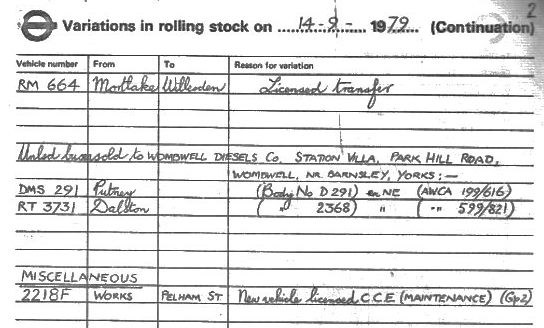 2
Variations in rolling stock on 14-9- 1979 (Continuation)
Vehicle number From To Reason for variation
RM 664 Mortlake Willesden Licensed transfer
Unlsd buses sold to WOMBWELL DIESELS Co. STATION VILLA, PARK HILL ROAD,
WOMBWELL, NR. BARNSLEY, YORKS:—
DMS 291 Putney (Body No D291) en NE (AWCA 199/616)
RT 3731 Dalston ( " 2368) " ( " 599/821)
MISCELLANEOUS
2218F WORKS PELHAM ST New vehicle licensed C.C.E (MAINTENANCE) (Gp2)